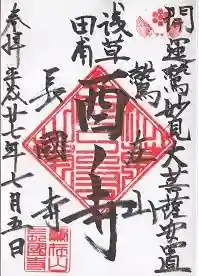 開運鷲妙見大菩薩安置
浅草
田甫
鷲在山
酉ノ寺
長國寺
奉拝 平成廿七年七月五日
長國寺